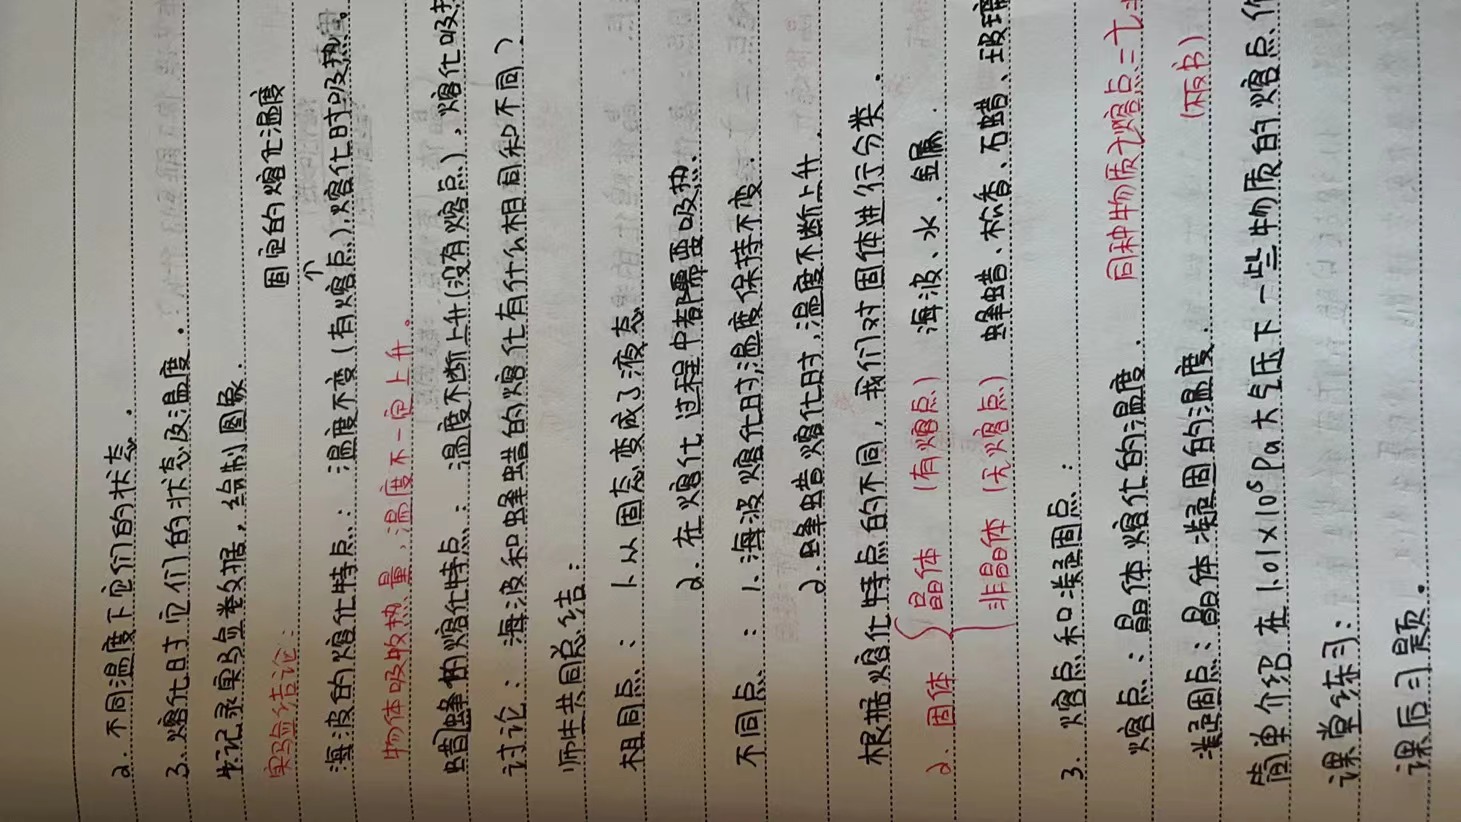 2. 不同温度下它们的状态.
3. 熔化时它们的状态及温度.
生记录实验数据, 绘制图象.
固定的熔化温度
实验结论:
↑
海波的熔化特点: 温度不变(有熔点), 熔化时吸热
物体吸收热量, 温度不一定上升。
蜂蜡的熔化特点: 温度不断上升(没有熔点), 熔化吸热
讨论: 海波和蜂蜡的熔化有什么相同和不同?
师生共同总结:
相同点: 1. 从固态变成了液态
2. 在熔化过程中都需要吸热.
不同点: 1. 海波熔化时温度保持不变.
2. 蜂蜡熔化时, 温度不断上升.
根据熔化特点的不同, 我们对固体进行分类.
2. 固体 { 晶体 (有熔点) 海波、水、金属.
非晶体 (无熔点) 蜂蜡、松香、石蜡、玻璃
3. 熔点和凝固点:
熔点: 晶体熔化的温度. 同种物质熔点=
凝固点: 晶体凝固的温度. (板书)
简单介绍在1.01×10⁵Pa大气压下一些物质的熔点.
课堂练习:
课后习题.